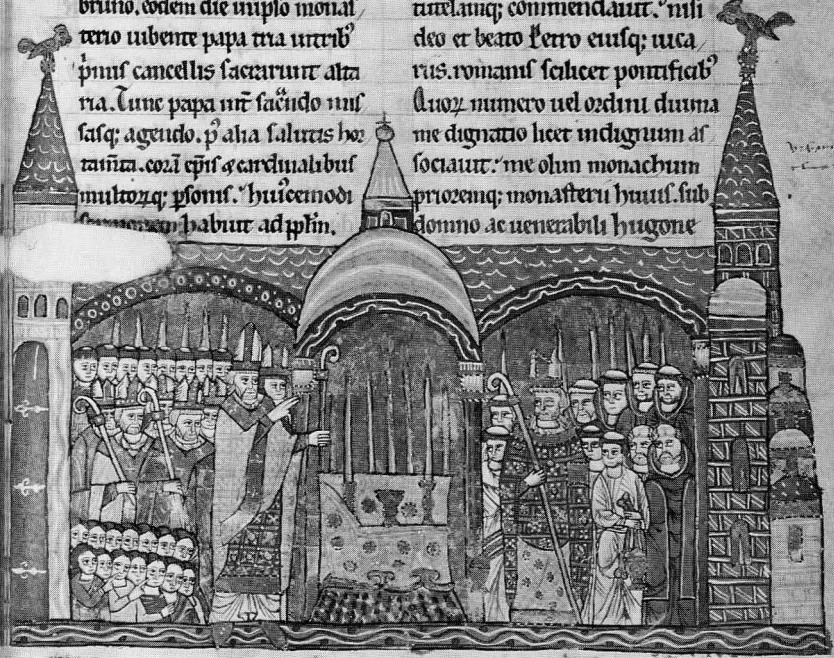 bruno. eodem die in ipso monas
terio iubente papa tria in tribꝰ
p̄mis cancellis sacrarunt alta
ria. Tunc papa int̄ sac̄ndo mis
sasq; agendo. p̄ alia salutis hor
tam̄ta. corā ep̄is & cardinalibus
multoꝝq; ꝑsonis. huiꝰcemodi
sermonem habuit ad pp̄lm.
tutelamq; commendauit. nisi
deo et beato Petro eiusq; uica
riis. romanis scilicet pontificibꝰ
Quoꝝ numero uel ordini diuina
me dignatio licet indignum as
sociauit. me olim monachum
prioremq; monasterii huius. sub
domno ac uenerabili hugone